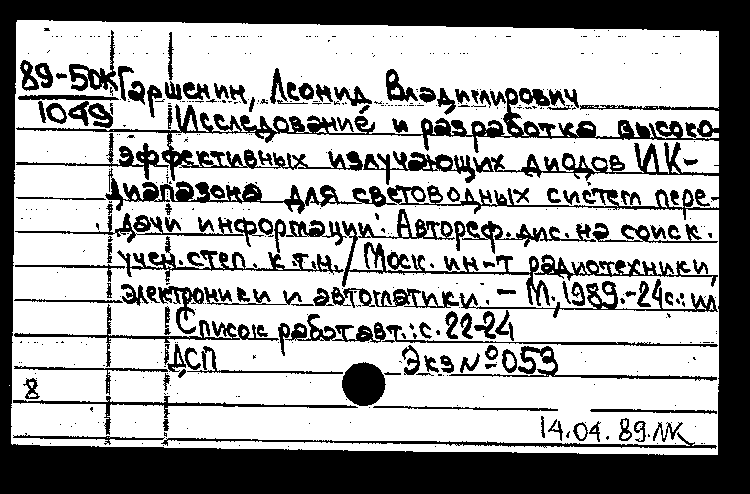 89-5ДК Гаршенин, Леонид Владимирович
1049 Исследование и разработка высоко-
эффективных излучающих диодов ИК-
диапазона для световодных систем пере-
дачи информации: Автореф. дис. на соиск.
учен. степ. к.т.н. / Моск. ин-т радиотехники,
электроники и автоматики. - М., 1989. - 24с.: ил
Список работ авт.: с. 22-24
ДСП Экз № 053
8
14.04.89.